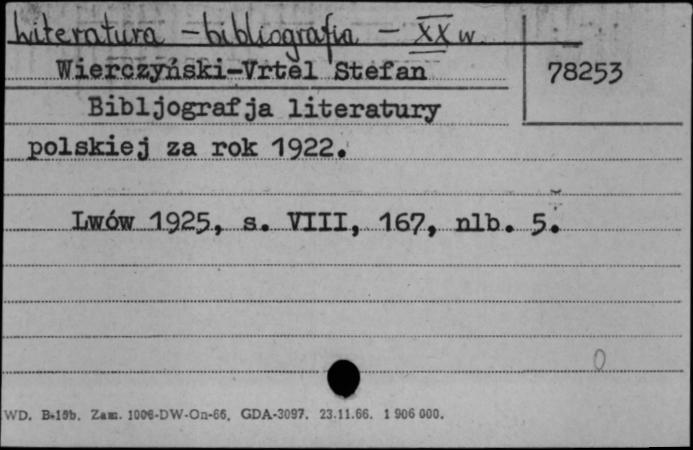 Literatura - bibliografia - XX w.
Wierczyński-Vrtel Stefan
78253
Bibljografja literatury
polskiej za rok 1922.
Lwów 1925, s. VIII, 167, nlb. 5.
0
WD. B-15b. Zam. 1006-DW-On-66. GDA-3097. 23.11.66. 1 906 000.